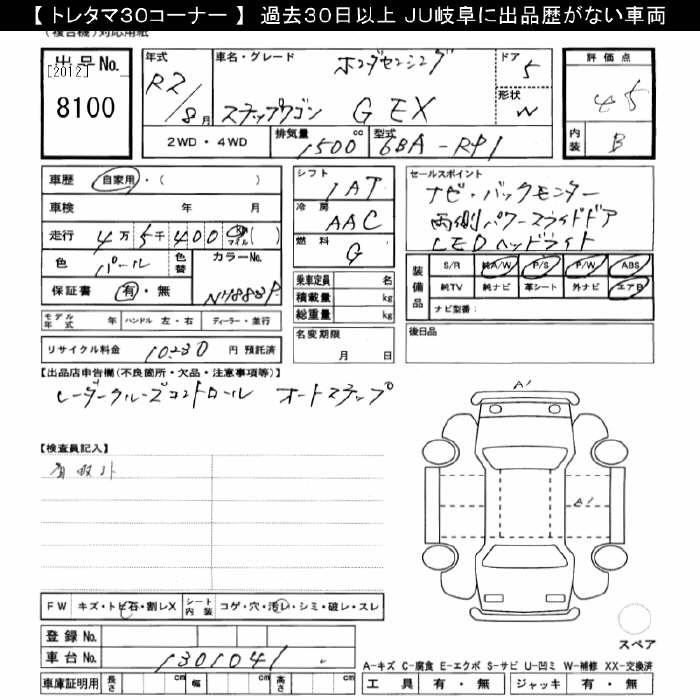 【 トレタマ30コーナー 】 過去30日以上 JU岐阜に出品歴がない車両
(複合機)対応用紙
出品No. [2012] 8100
年式 R2/8月
車名・グレード ホンダセンシング
ステップワゴン G EX
ドア 5
形状 W
評価点 4.5
内装 B
2WD・4WD 排気量 1500 cc 型式 6BA-RP1
車歴 自家用・( )
車検 年 月
走行 4万5千400 km マイル ( )
色 パール 色替 カラーNo. NH883P
保証書 有・無
シフト IAT
冷房 AAC
燃料 G
乗車定員 名
積載量 kg
総重量 kg
セールスポイント
ナビ・バックモニター
両側パワースライドドア
LEDヘッドライト
装備品 S/R 純A/W P/S P/W ABS
純TV 純ナビ 革シート 外ナビ エアB
ナビ型番:
モデル年式 年 ハンドル 左・右 ディーラー・並行
名変期限 月 日
後日品
リサイクル料金 10230 円 預託済
【出品店申告欄(不良箇所・欠品・注意事項等)】
レーダークルーズコントロール オートステップ
【検査員記入】
A1
A1
FW キズ・トビ石・割レX シート内装 コゲ・穴・汚レ・シミ・破レ・スレ
登録No.
車台No. 1301041
スペア
A-キズ C-腐食 E-エクボ S-サビ U-凹ミ W-補修 XX-交換済
車庫証明用 長さ cm 幅 cm 高さ cm
工具 有・無 ジャッキ 有・無